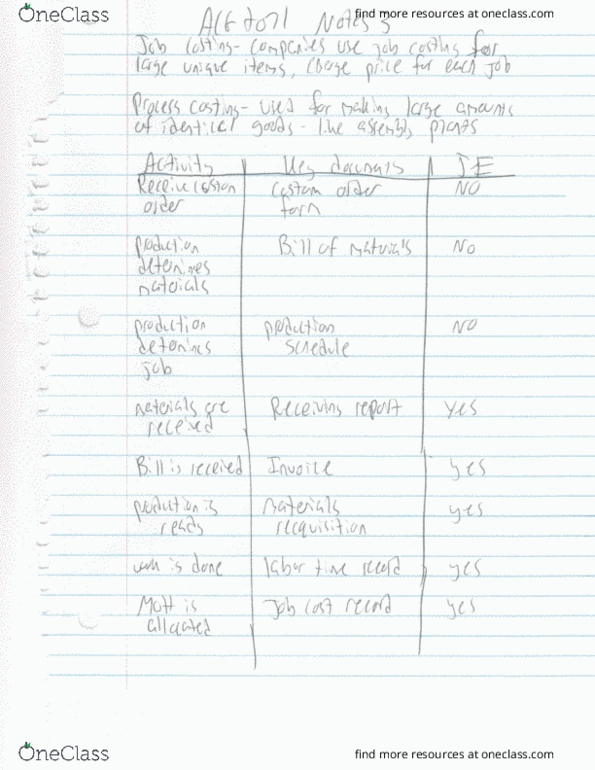 OneClass
find more resources at oneclass.com
Notes
Job costing- companies use job costing for
large unique items, Charge price for each job
Process costing- used for making large amounts
of identical goods - like assembly plants
Activity Key documents JE
Receive custom Custom order NO
order form
production Bill of materials No
determines
materials
production production NO
determines schedule
job
materials are Receiving report yes
received
Bill is received Invoice yes
production is materials yes
ready recquisition
work is done labor time record yes
MOH is Job cost record yes
allocated
OneClass
find more resources at oneclass.com